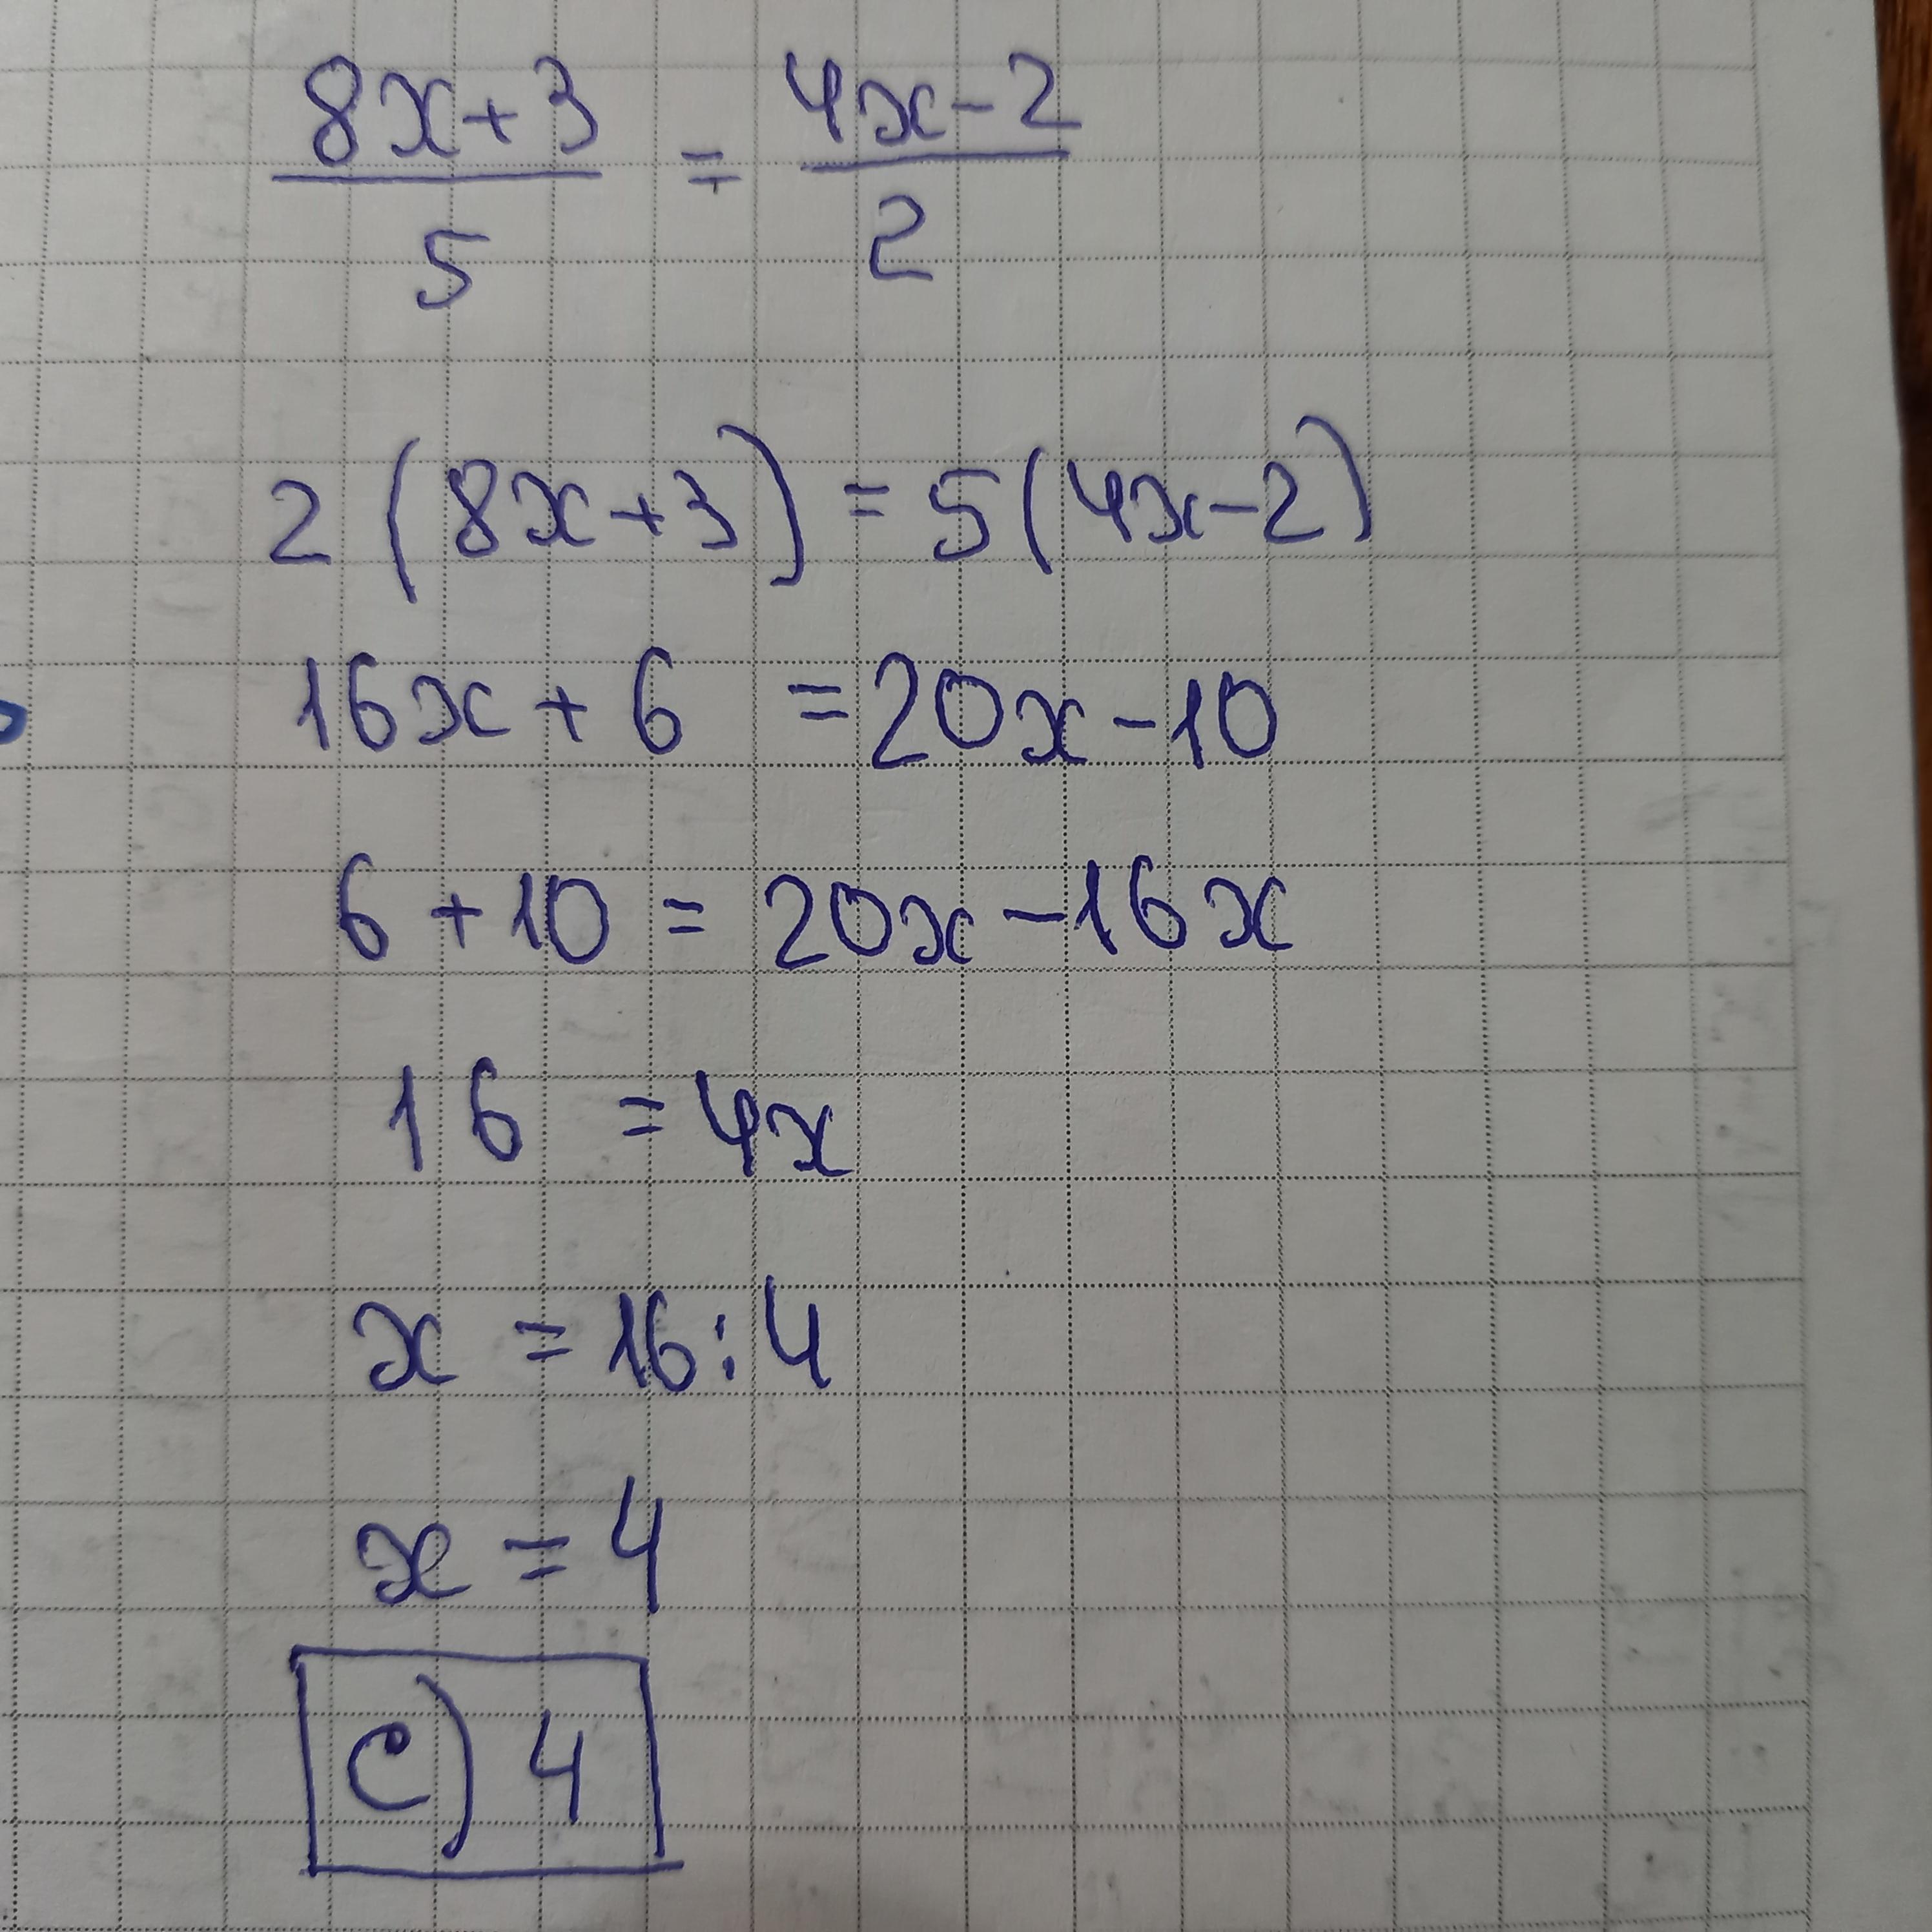 8x+3 / 5 = 4x-2 / 2
2(8x+3) = 5(4x-2)
16x+6 = 20x-10
6+10 = 20x-16x
16 = 4x
x = 16:4
x = 4
c) 4